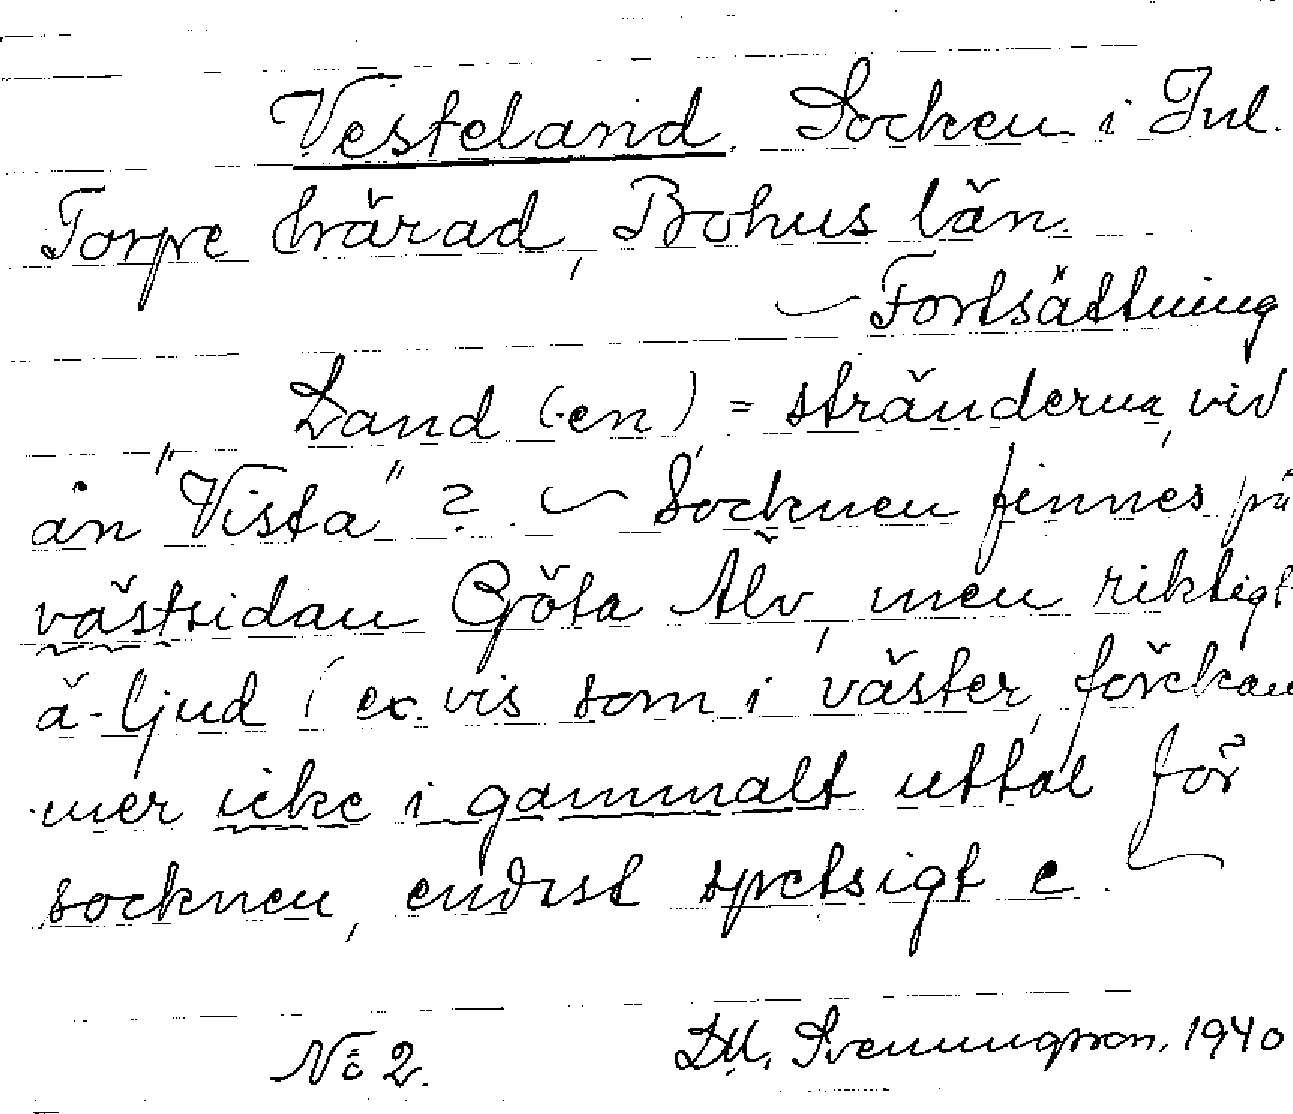 Vesteland. Socken i Inl.
Torpe härad, Bohus län.
— Fortsättning
Land (-en), = stränderna, vid
ån "Vista"? — Socknen finnes på
västsidan Göta Älv, men riktigt
ä-ljud (ex. vis som i väster, förekom
mer icke i gammalt uttal för
socknen, endast spetsigt e.
No 2. D.M. Svenungsson. 1940